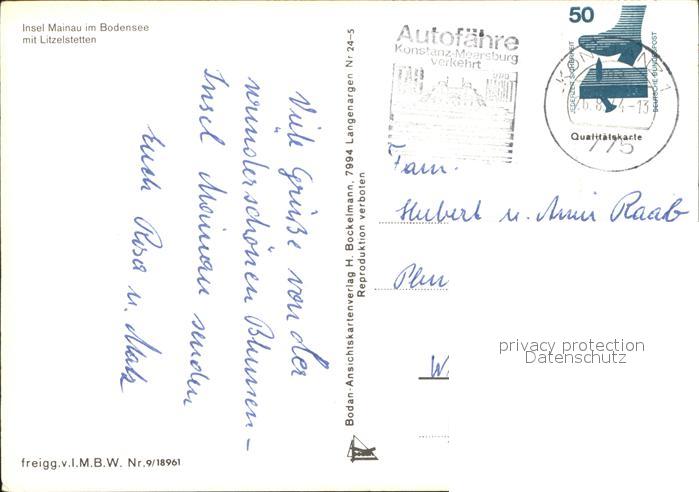 Insel Mainau im Bodensee
mit Litzelstetten
Viele Grüße von der
wunderschönen Blumen-
Insel Mainau senden
Euch Rosa u.
Bodan-Ansichtskartenverlag H. Bockelmann, 7994 Langenargen Nr 24-5
Reproduktion verboten
Autofähre
Konstanz-Meersburg
verkehrt
50
DEUTSCHE BUNDESPOST
775
Qualitätskarte
Fam.
Hubert u. Anni Raab
privacy protection
Datenschutz
freigg.v.I.M.B.W. Nr.9/18961